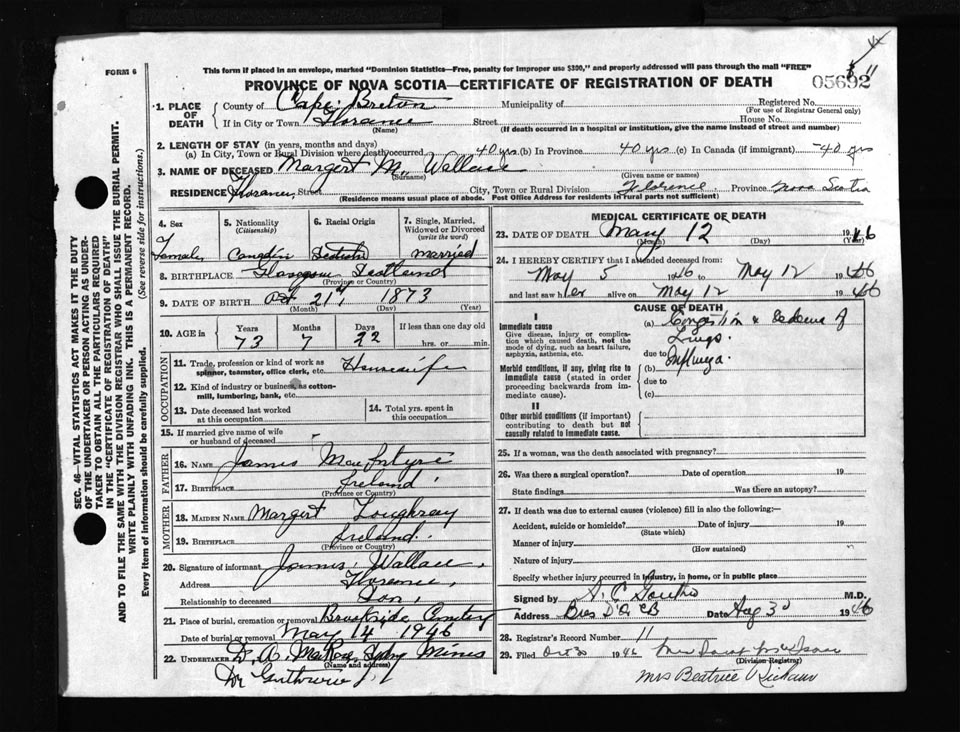 FORM 6
This form if placed in an envelope, marked "Dominion Statistics—Free, penalty for improper use $300," and properly addressed will pass through the mail "FREE"
PROVINCE OF NOVA SCOTIA—CERTIFICATE OF REGISTRATION OF DEATH
05692
1. PLACE OF DEATH
County of Cape Breton Municipality of Registered No.
(For use of Registrar General only)
If in City or Town Florance Street House No.
(Name) (If death occurred in a hospital or institution, give the name instead of street and number)
2. LENGTH OF STAY (in years, months and days)
(a) In City, Town or Rural Division where death occurred 40 yrs (b) In Province 40 yrs (c) In Canada (if immigrant) 40 yrs
3. NAME OF DECEASED Margert M. Wallace
(Surname) (Given name or names)
RESIDENCE Street City, Town or Rural Division Florence Province Nova Scotia
(Residence means usual place of abode. Post Office Address for residents in rural parts not sufficient)
4. Sex
Female
5. Nationality
(Citizenship)
6. Racial Origin
7. Single, Married, Widowed or Divorced
(write the word)
married
8. BIRTHPLACE Glasgow Scotland
(Province or Country)
9. DATE OF BIRTH Oct 21 1873
(Month) (Day) (Year)
10. AGE in Years Months Days If less than one day old
73 7 22 hrs. or min.
OCCUPATION
11. Trade, profession or kind of work as spinner, teamster, office clerk, etc. Housewife
12. Kind of industry or business, as cotton-mill, lumbering, bank, etc.
13. Date deceased last worked at this occupation
14. Total yrs. spent in this occupation
15. If married give name of wife or husband of deceased
FATHER
16. NAME James MacIntyre
17. BIRTHPLACE Ireland
(Province or Country)
MOTHER
18. MAIDEN NAME Margert Loughray
19. BIRTHPLACE Ireland
(Province or Country)
20. Signature of informant James Wallace
Address Florence
Relationship to deceased Son
21. Place of burial, cremation or removal Brookside Cemetery
Date of burial or removal May 14 1946
22. UNDERTAKER D. A. Mines
(Name and address)
Dr
MEDICAL CERTIFICATE OF DEATH
23. DATE OF DEATH May 12 1946
(Month) (Day) (Year)
24. I HEREBY CERTIFY that I attended deceased from:
May 5 1946 to May 12 1946
and last saw her alive on May 12 1946
CAUSE OF DEATH
I
Immediate cause
Give disease, injury or complication which caused death, not the mode of dying, such as heart failure, asphyxia, asthenia, etc.
(a) Congestion & Oedema of
Lungs
due to
Morbid conditions, if any, giving rise to immediate cause (stated in order proceeding backwards from immediate cause).
(b)
due to
(c)
II
Other morbid conditions (if important) contributing to death but not causally related to immediate cause.
25. If a woman, was the death associated with pregnancy?
26. Was there a surgical operation? Date of operation 19
State findings Was there an autopsy?
27. If death was due to external causes (violence) fill in also the following:—
Accident, suicide or homicide? Date of injury 19
(State which)
Manner of injury
(How sustained)
Nature of injury
Specify whether injury occurred in industry, in home, or in public place
Signed by M.D.
Address Date Aug 30 1946
28. Registrar's Record Number 11
29. Filed Oct 1946
(Division Registrar)
Mrs Beatrice
SEC. 46—VITAL STATISTICS ACT MAKES IT THE DUTY
OF THE UNDERTAKER OR PERSON ACTING AS UNDER-
TAKER TO OBTAIN ALL THE PARTICULARS REQUIRED
IN THE "CERTIFICATE OF REGISTRATION OF DEATH"
AND TO FILE THE SAME WITH THE DIVISION REGISTRAR WHO SHALL ISSUE THE BURIAL PERMIT.
WRITE PLAINLY WITH UNFADING INK. THIS IS A PERMANENT RECORD.
Every item of information should be carefully supplied. (See reverse side for instructions.)